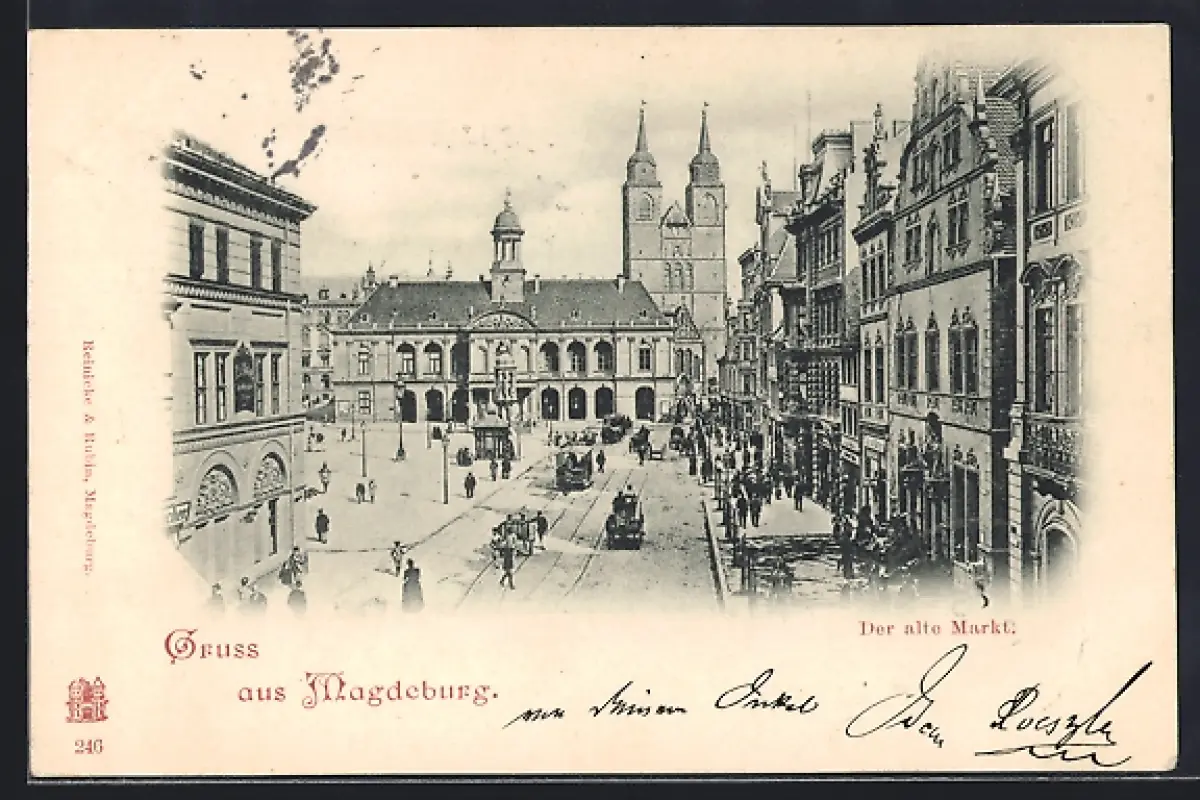 Reinicke & Rubin, Magdeburg.
Der alte Markt.
Gruss
aus Magdeburg.
von Deinem Onkel
246